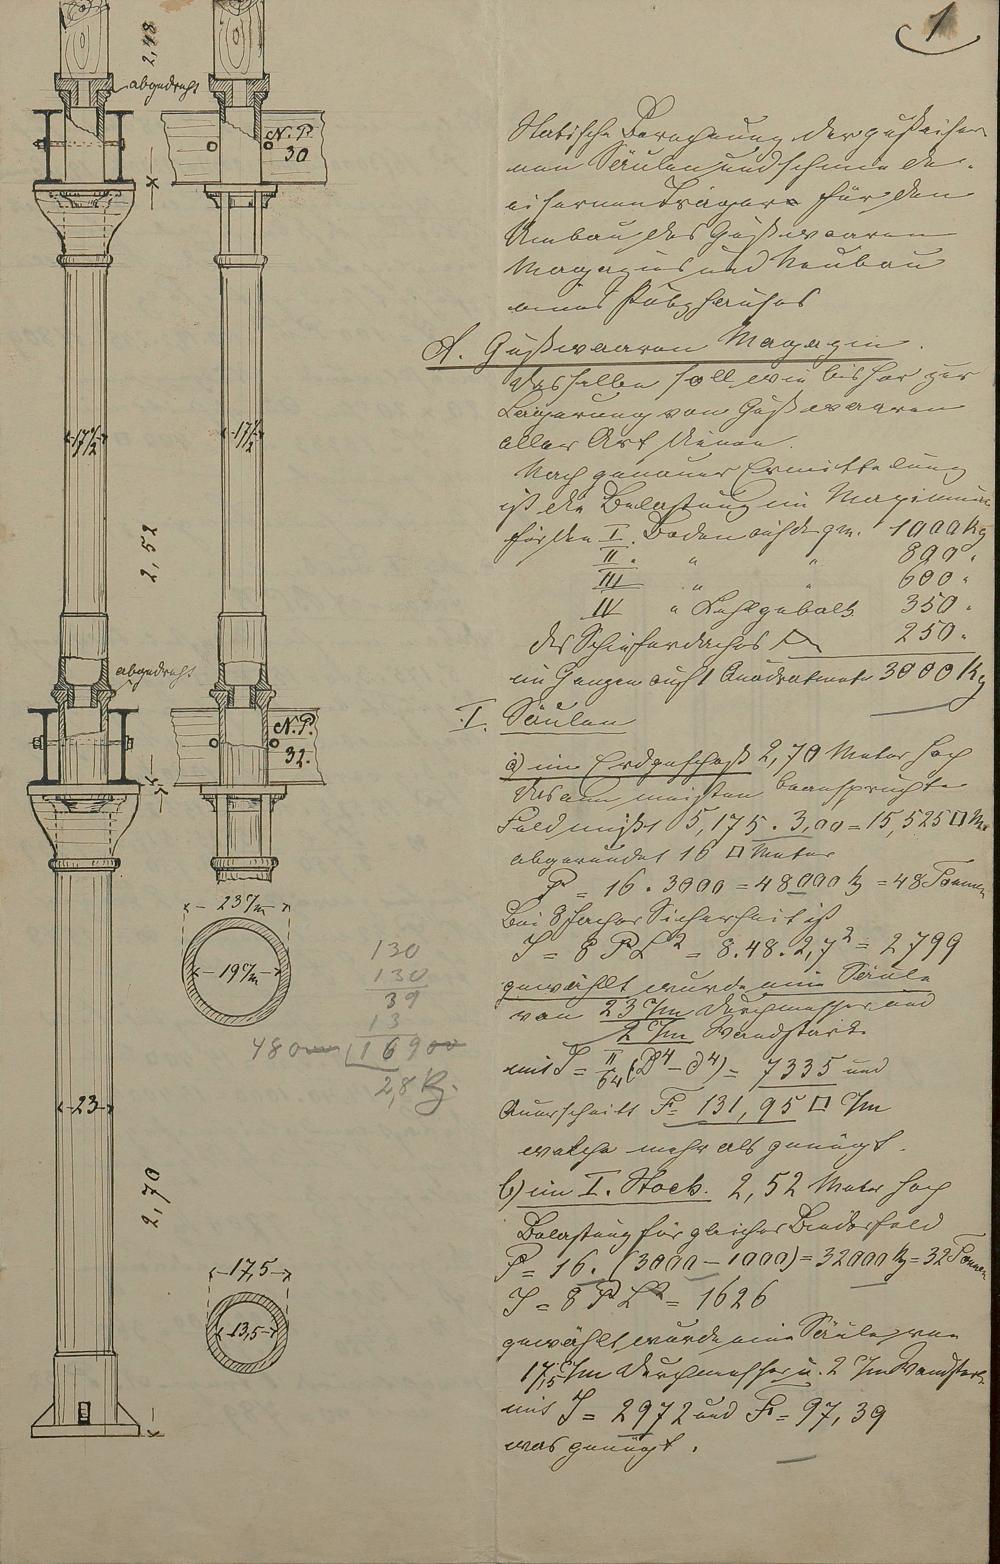 1
2,48
abgedreht
N. P.
30
17 1/2
17 1/2
2,52
abgedreht
N. P.
32.
23 c/m
19 c/m
130
130
39
13
480000 | 16900
2,8 K.
23
2,70
17,5
13,5
Statische Berechnung der gußeiser
nen Säulen und schmiede-
eisernen Träger für den
Umbau des Gußwaaren
Magazins und Neubau
eines Putzhauses
A. Gußwaaren Magazin.
Dasselbe soll wie bisher zur
Lagerung von Gußwaaren
aller Art dienen.
Nach genauer Ermittelung
ist die Belastung im Maximum
für den I. Boden auf 1 □ m. 1000 Kg
II. " " 800 "
III " " 600 "
IV " Kehlgebälk 350 "
des Schieferdaches 250 "
im Ganzen auf 1 Quadratmeter 3000 Kg
I. Säulen
a) im Erdgeschoß 2,70 Meter hoch
Das am meisten beanspruchte
Feld mißt 5,175 . 3,00 = 15,525 □ Mr
abgerundet 16 □ Meter
P = 16 . 3000 = 48000 K = 48 Tonnen
Bei 8 facher Sicherheit ist
J = 8 P L² = 8 . 48 . 2,7² = 2799
gewählt wurde eine Säule
von 23 c/m Durchmesser und
2 c/m Wandstärke
mit J = π/64 (D⁴ - d⁴) = 7335 und
Querschnitt F = 131,95 □ c/m
welche mehr als genügt.
b) im I. Stock. 2,52 Meter hoch
Belastung für gleiches Binderfeld
P = 16 . (3000 - 1000) = 32000 K = 32 Tonnen
J = 8 P L² = 1626
gewählt wurde eine Säule von
17,5 c/m Durchmesser u. 2 c/m Wandstärke
mit J = 2972 und F = 97,39
was genügt.